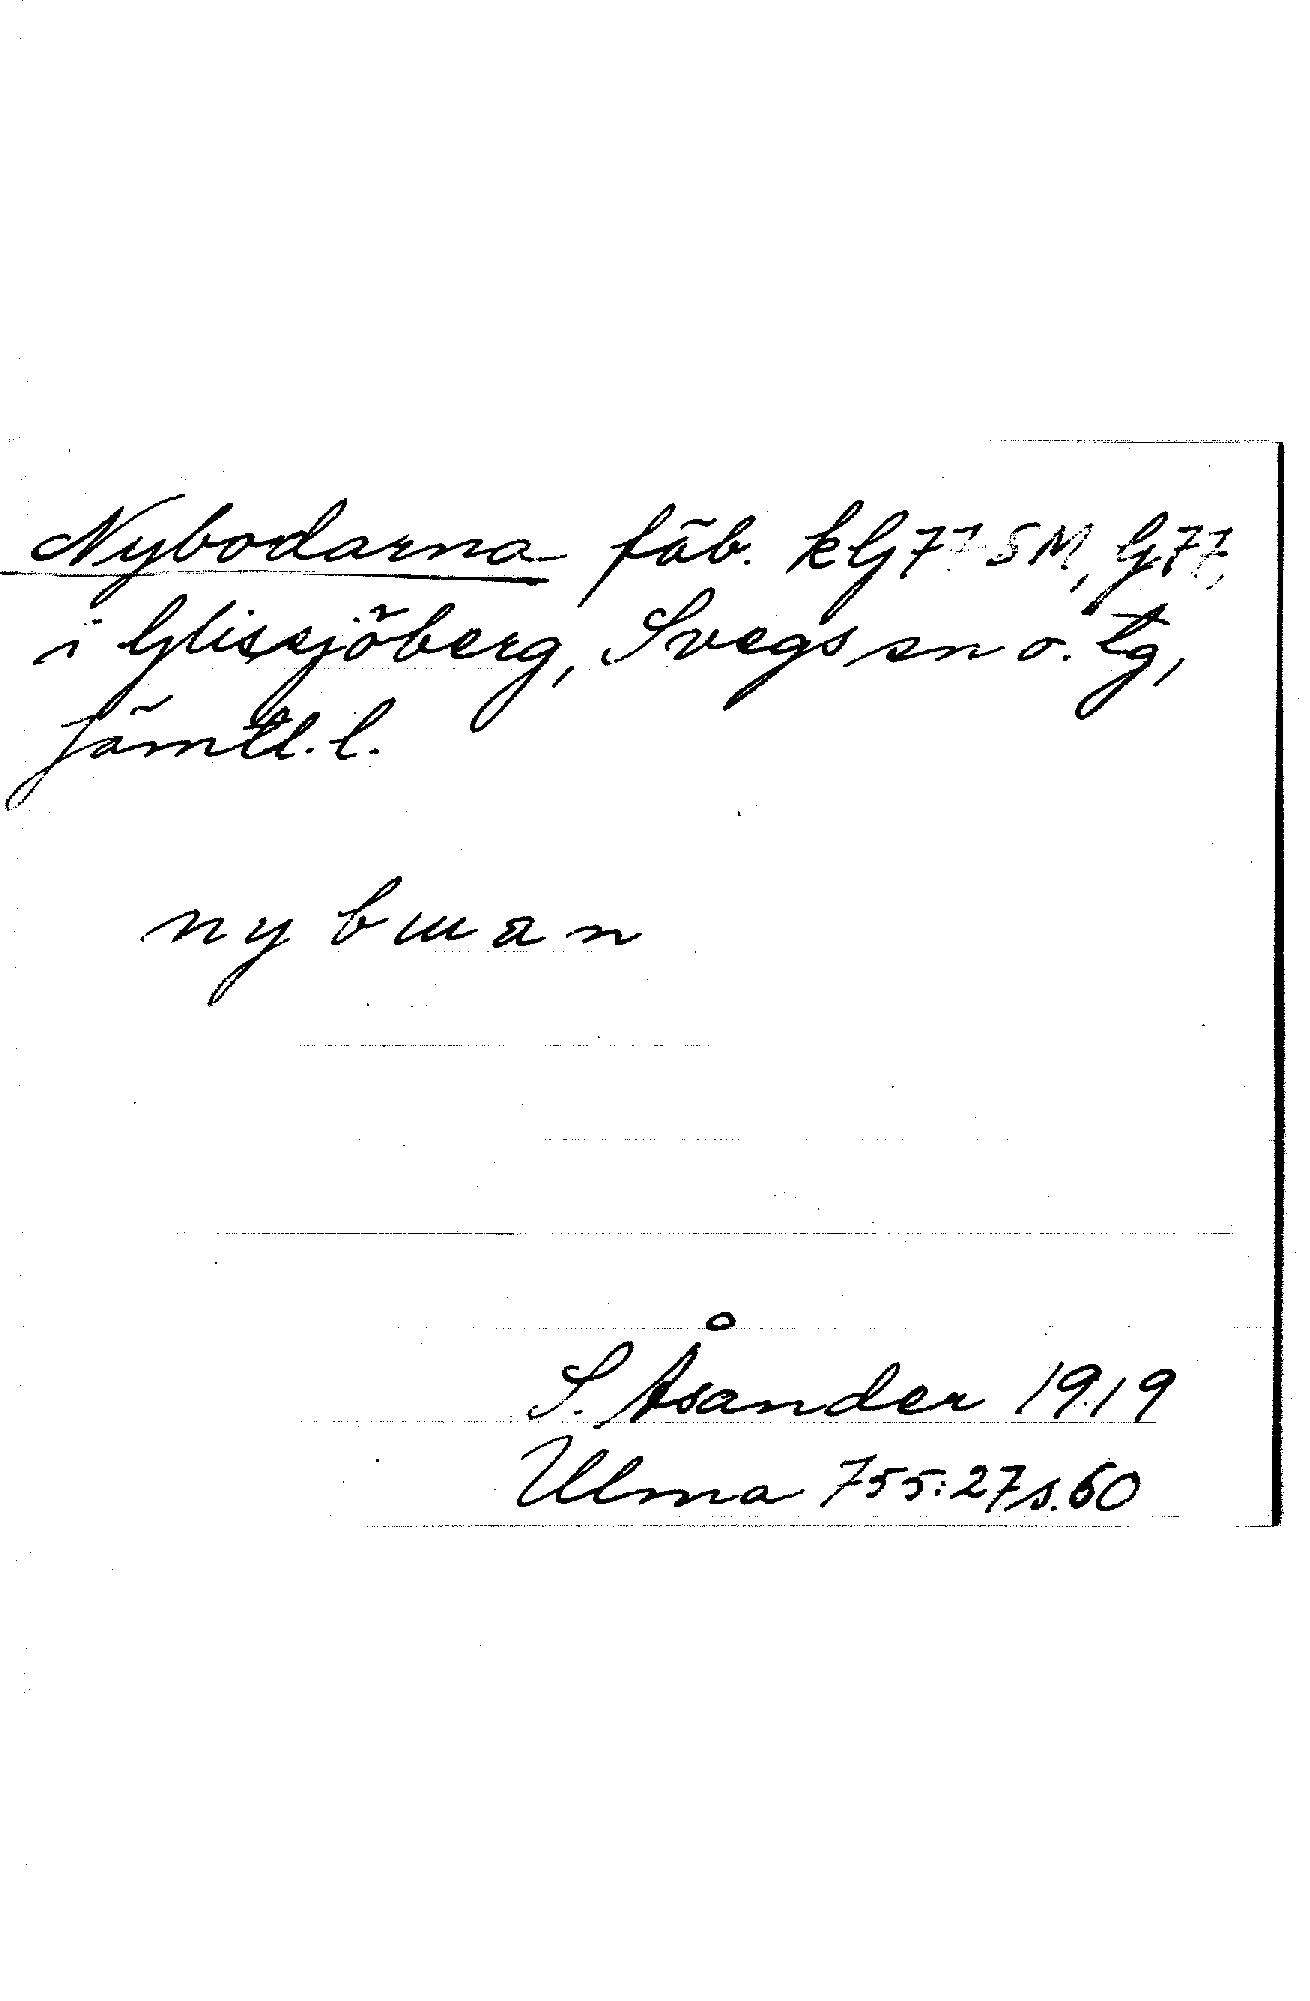 Nybodarna fäb. kG77 SM, G77,
i Glissjöberg, Svegs sn o. tg,
Jämtl. l.
nybɯan
S. Åsander 1919
Ulma 755:27 s. 60